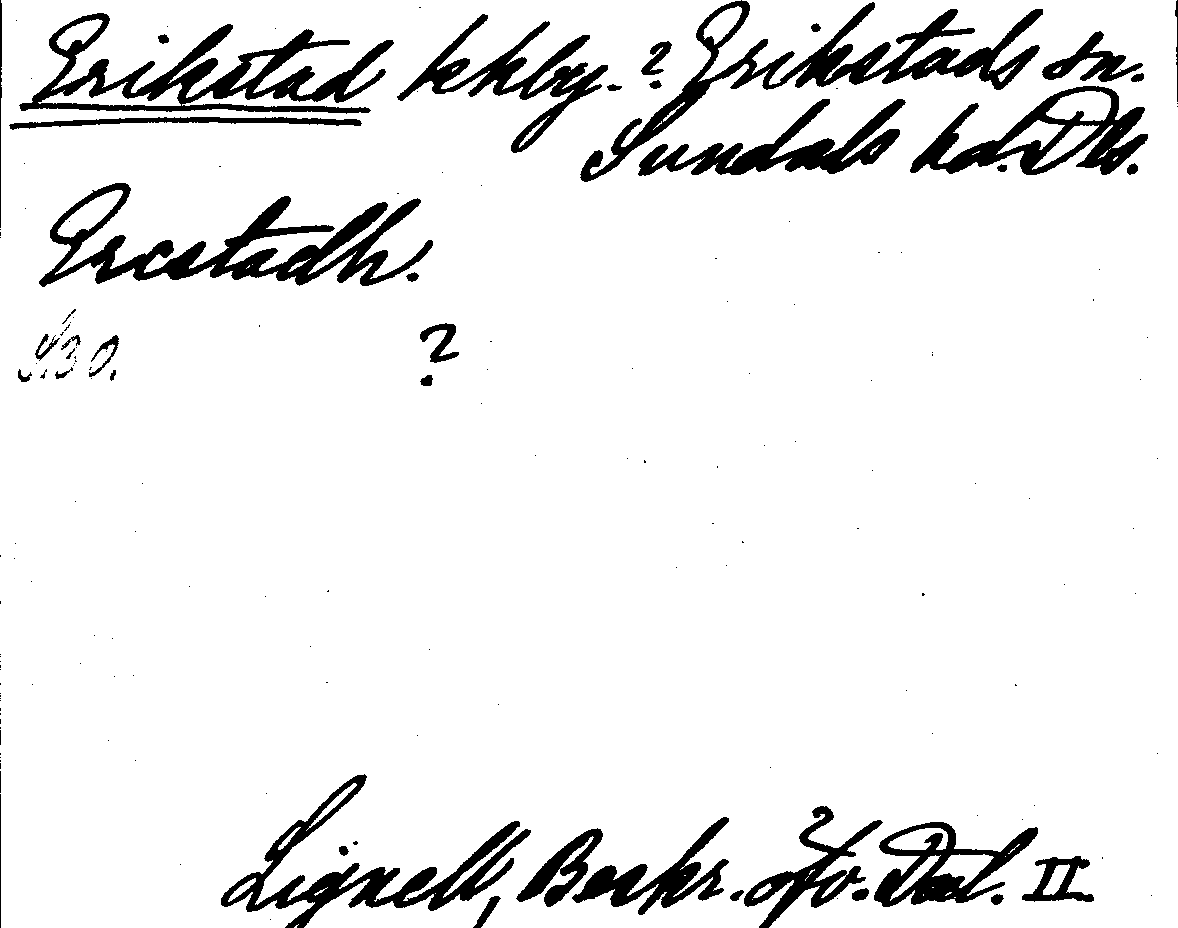 Erikstad kkby.? Erikstads sn.
Sundals hd. Dls.
Ercstadh.
S.30. ?
Lignell, Beskr. öfv. Dal. II